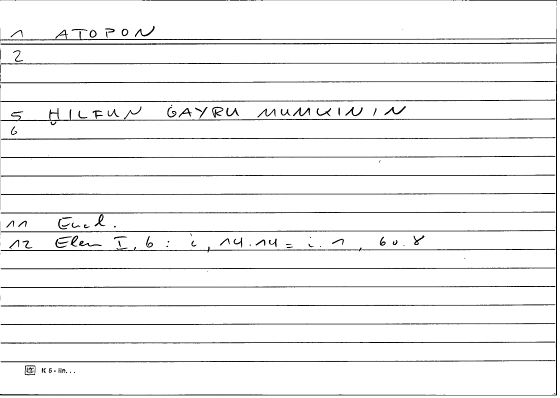 1 ATOPON
2
5 ḪILFUN ĠAYRU MUMKININ
6
11 Eucl.
12 Elem I, 6 : i, 14.14 = i. 1, 6 u. 8
K 5 - lin...